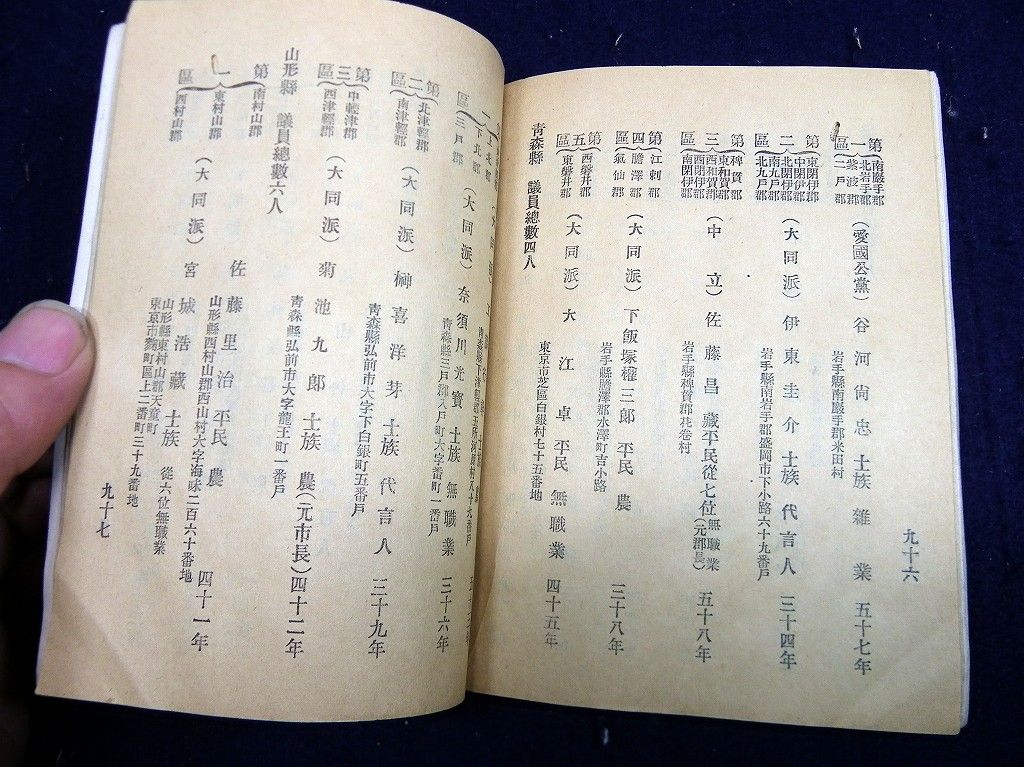 九十六
第一區 南巖手郡 北岩手郡 紫波郡 二戸郡 （愛國公黨） 谷河尙忠 士族 雜業 五十七年
岩手縣南巖手郡米田村
第二區 東閉伊郡 中閉伊郡 北閉伊郡 南九戸郡 北九戸郡 （大同派） 伊東圭介 士族 代言人 三十四年
岩手縣南岩手郡盛岡市下小路六十九番戸
第三區 稗貫郡 東和賀郡 西和賀郡 西閉伊郡 南閉伊郡 （中立） 佐藤昌藏 平民 從七位 無職業（元郡長） 五十八年
岩手縣稗貫郡花卷村
第四區 江刺郡 膽澤郡 氣仙郡 （大同派） 下飯塚權三郎 平民 農 三十八年
岩手縣膽澤郡水澤町吉小路
第五區 西磐井郡 東磐井郡 （大同派） 大江卓 平民 無職業 四十五年
東京市芝區白銀村七十五番地
靑森縣 議員總數四人
下北郡 三戸郡 （大同派） 奈須川光寶 士族 無職業 三十六年
靑森縣三戸郡八戸町大字番町一番戸
第二區 北津輕郡 南津輕郡 （大同派） 榊喜洋芽 士族 代言人 三十九年
靑森縣弘前市大字下白銀町五番戸
第三區 中輕津郡 西津輕郡 （大同派） 菊池九郎 士族 農（元市長） 四十二年
靑森縣弘前市大字龍王町一番戸
山形縣 議員總數六人
第一區 南村山郡 東村山郡 西村山郡 （大同派） 佐藤里治 平民 農 四十一年
山形縣西村山郡西山村大字海味二百六十番地
宮城浩藏 士族 從六位無職業
山形縣東村山郡天童町
東京市麴町區上二番町三十九番地
九十七